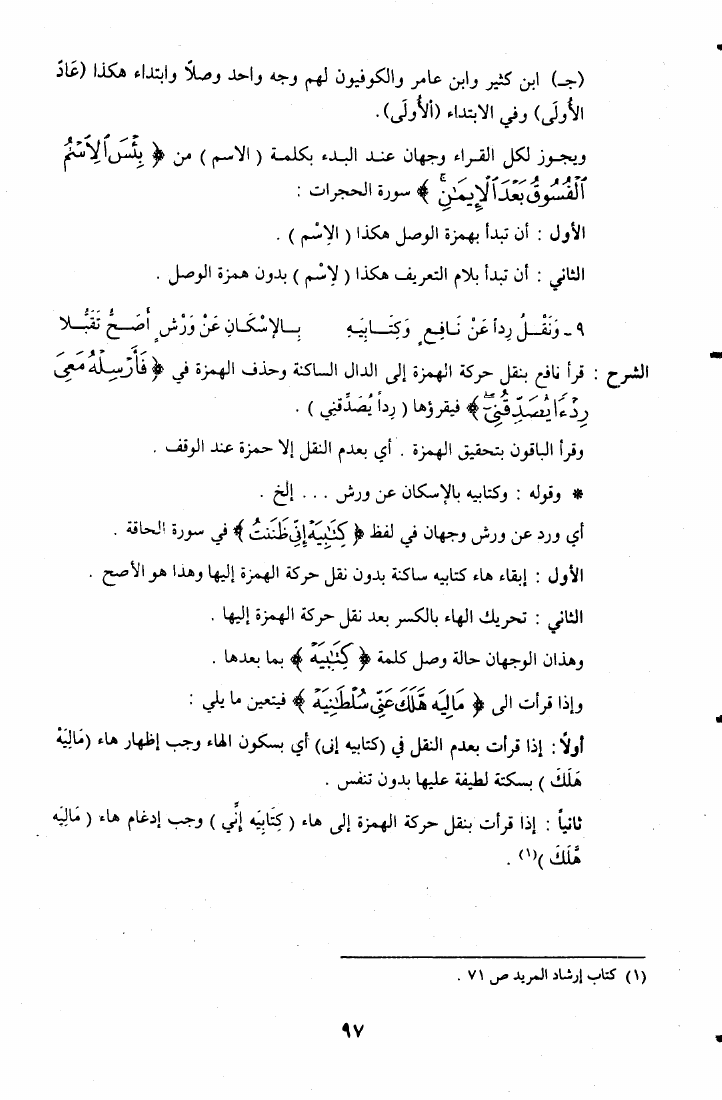 (جـ) ابن كثير وابن عامر والكوفيون لهم وجه واحد وصلاً وابتداء هكذا (عَادَ
الأُولَى) وفي الابتداء (ألأُولَى).
ويجوز لكل القراء وجهان عند البدء بكلمة ( الاسم ) من ﴿ بِئْسَ ٱلِٱسْمُ
ٱلْفُسُوقُ بَعْدَ ٱلْإِيمَٰنِۚ ﴾ سورة الحجرات :
الأول : أن تبدأ بهمزة الوصل هكذا ( الِاسْم ) .
الثاني : أن تبدأ بلام التعريف هكذا ( لِاسْم ) بدون همزة الوصل .
٩ ـ وَنَقْـلُ رِداً عَنْ نَـافِعٍ وَكِتَـابِيَهِ بِـالإِسْكَـانِ عَنْ وَرْشٍ أَصَـحُّ تَقَبُّـلا
الشرح : قرأ نافع بنقل حركة الهمزة إلى الدال الساكنة وحذف الهمزة في ﴿ فَأَرْسِلْهُ مَعِيَ
رِدْءًا يُصَدِّقُنِيٓۖ ﴾ فيقرؤها ( رِداً يُصَدِّقنِي ) .
وقرأ الباقون بتحقيق الهمزة . أي بعدم النقل إلا حمزة عند الوقف .
* وقوله : وكتابيه بالإسكان عن ورش ... إلخ .
أي ورد عن ورش وجهان في لفظ ﴿ كِتَٰبِيَهْ إِنِّي ظَنَنتُ ﴾ في سورة الحاقة .
الأول : إبقاء هاء كتابيه ساكنة بدون نقل حركة الهمزة إليها وهذا هو الأصح .
الثاني : تحريك الهاء بالكسر بعد نقل حركة الهمزة إليها .
وهذان الوجهان حالة وصل كلمة ﴿ كِتَٰبِيَهْ ﴾ بما بعدها .
وإذا قرأت الى ﴿ مَالِيَه هَّلَكَ عَنِّي سُلْطَٰنِيَهْ ﴾ فيتعين ما يلي :
أولاً : إذا قرأت بعدم النقل في (كتابيه إنى) أي بسكون الهاء وجب إظهار هاء (مَالِيَهْ
هَلَكَ ) بسكتة لطيفة عليها بدون تنفس .
ثانياً : إذا قرأت بنقل حركة الهمزة إلى هاء ( كِتَابِيَه إِنِّي ) وجب إدغام هاء ( مَالِيَه
هَّلَكَ )(١) .
(١) كتاب إرشاد المريد ص ٧١ .
٩٧